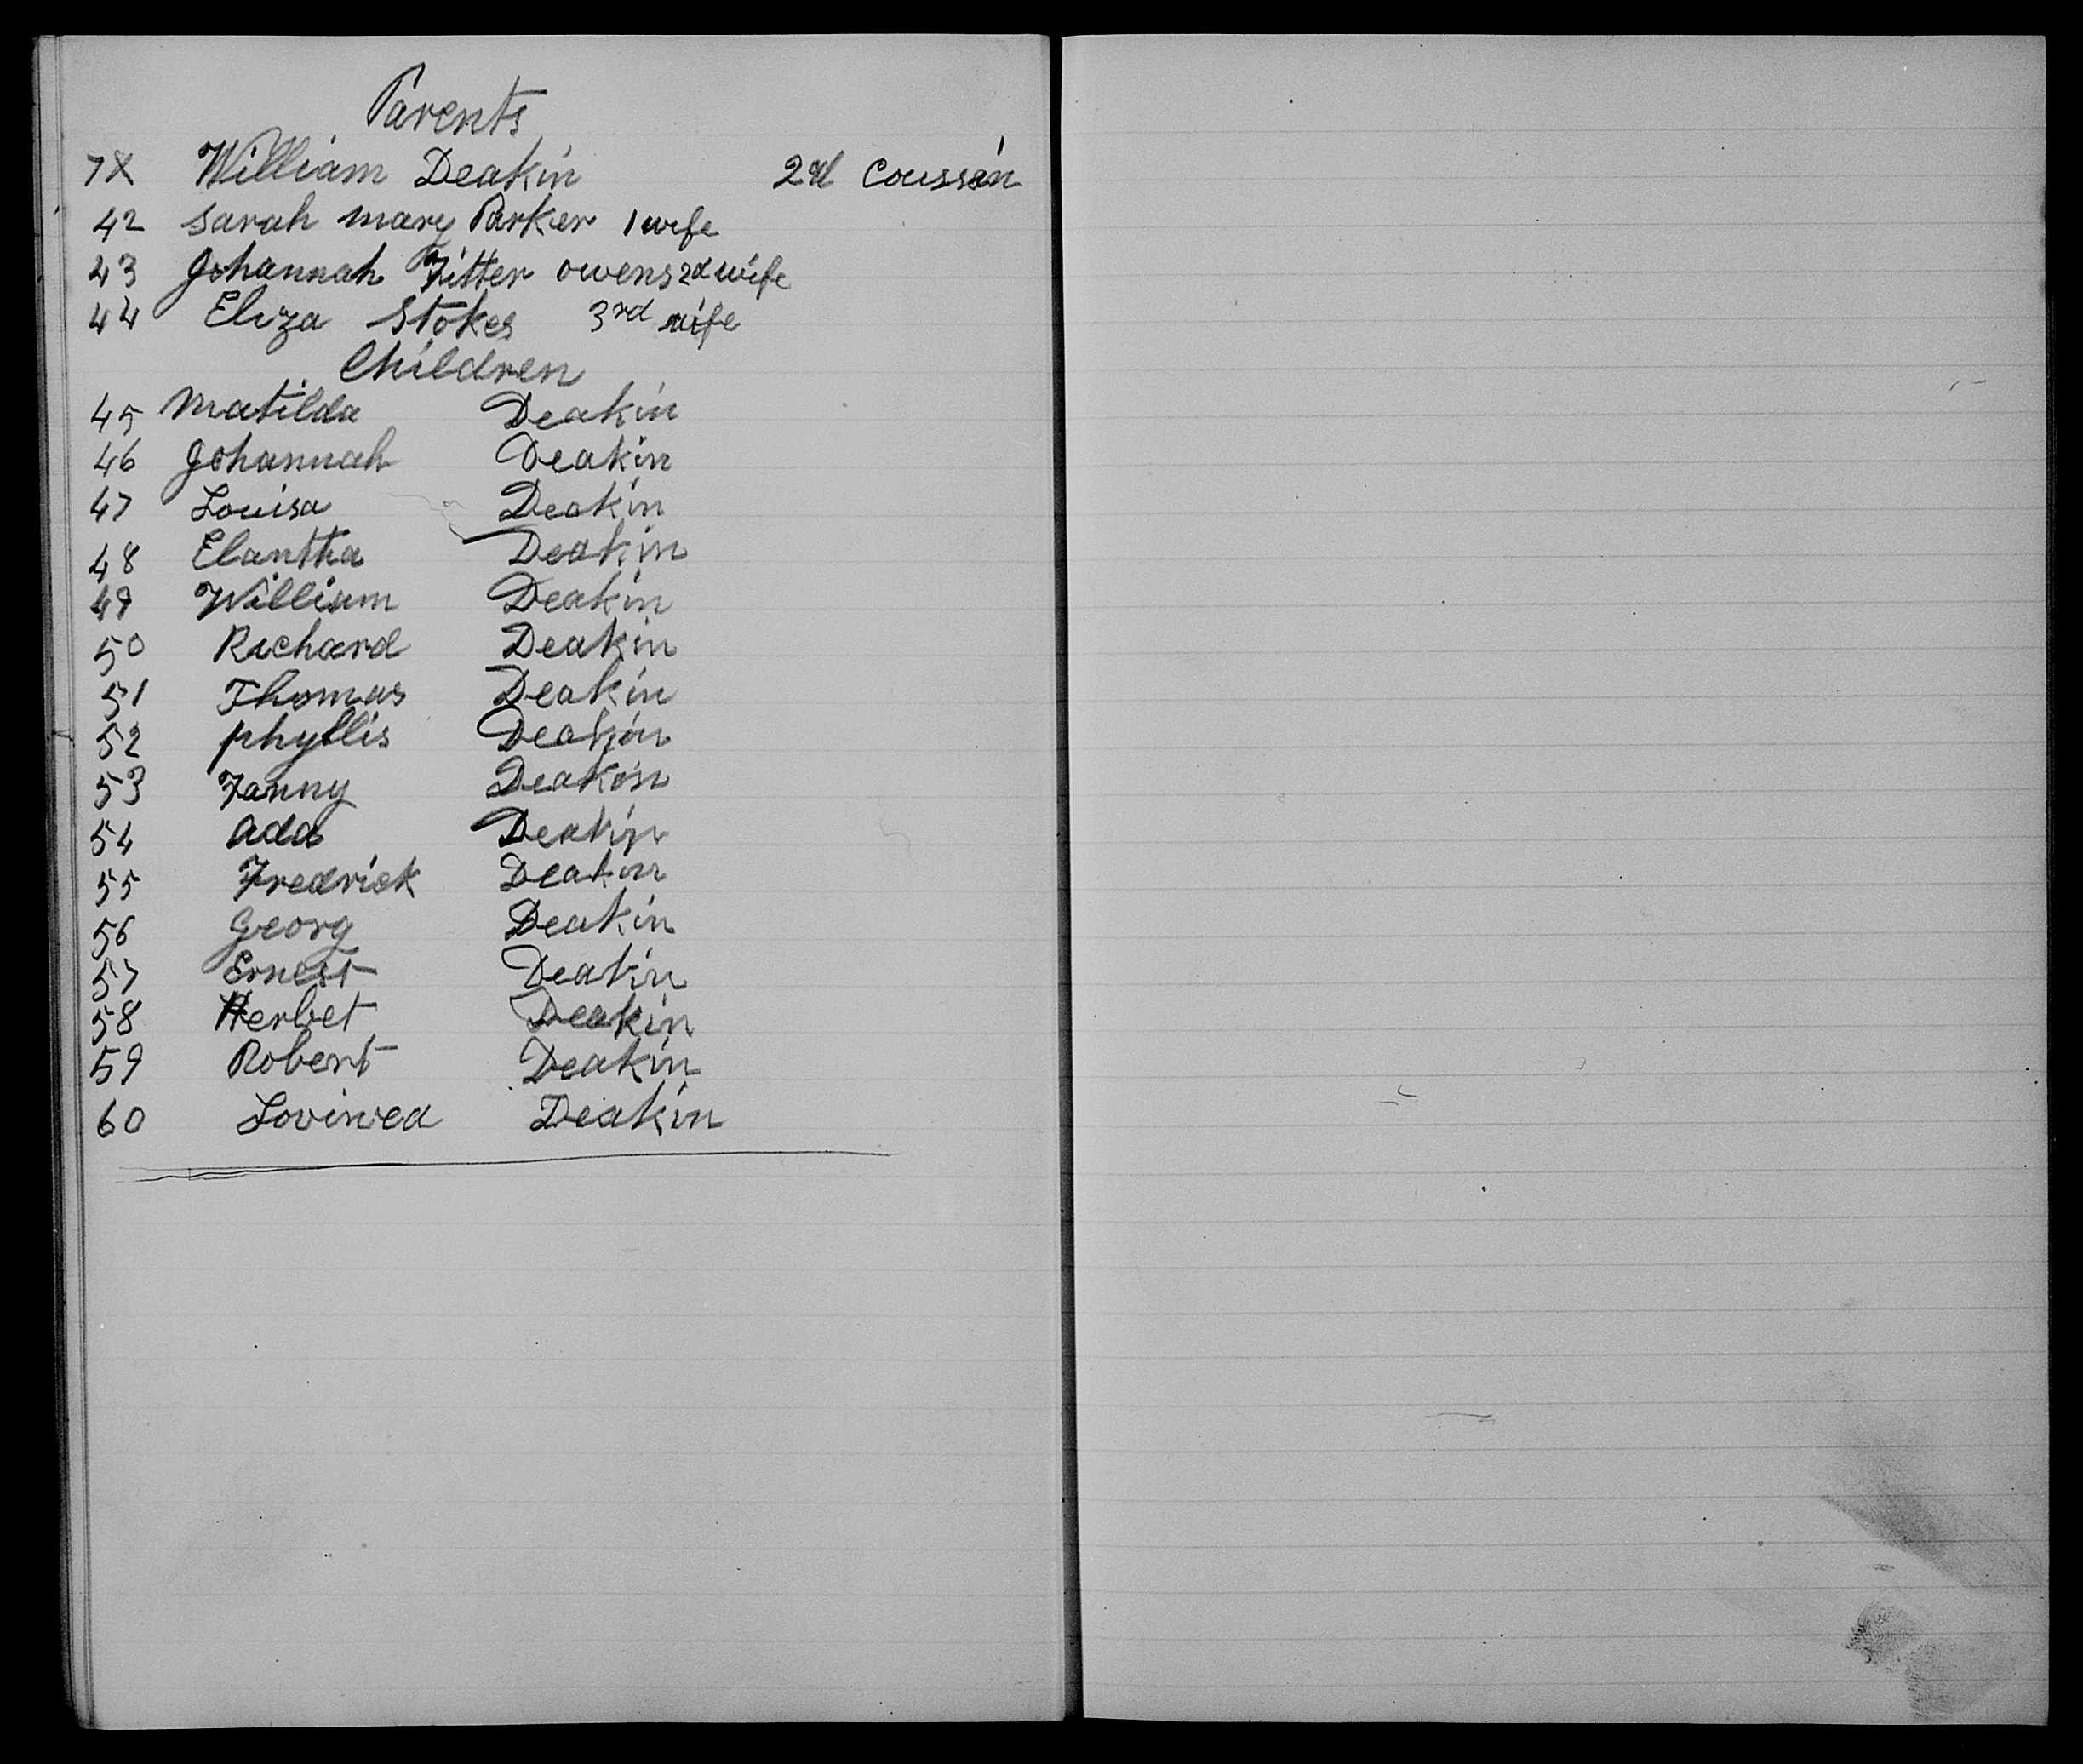 Parents
7X William Deakin 2d Coussin
42 Sarah mary Parker 1 wife
43 Johannah Fitter owens 2d wife
44 Eliza Stokes 3rd wife
Children
45 Matilda Deakin
46 Johannah Deakin
47 Louisa Deakin
48 Elantha Deakin
49 William Deakin
50 Richard Deakin
51 Thomas Deakin
52 phyllis Deakin
53 Fanny Deakin
54 ada Deakin
55 Fredrick Deakin
56 Georg Deakin
57 Ernest Deakin
58 Herbet Deakin
59 Robert Deakin
60 Deakin